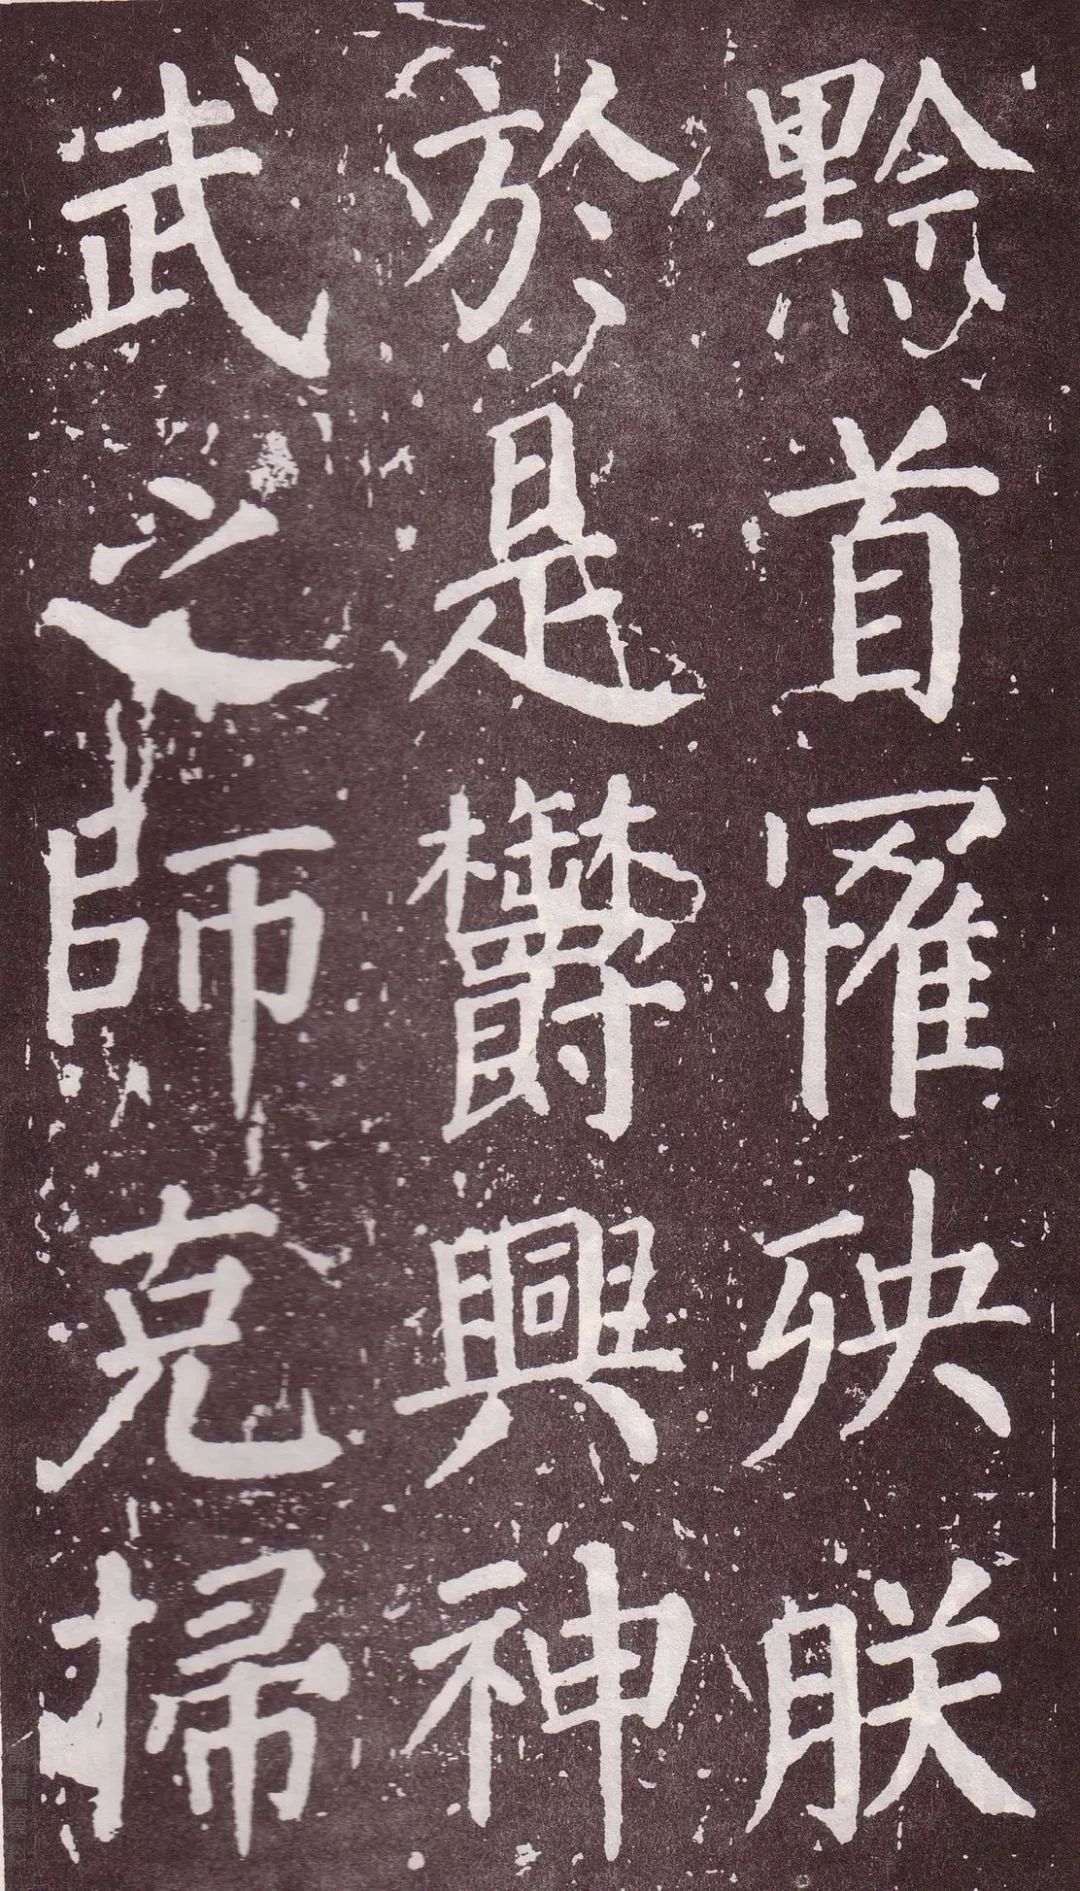 黔首罹殃朕
於是欎興神
武之師克掃